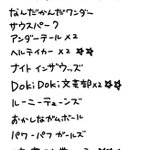 なんだかんだワンダー
サウスパーク
アンダーテール×2
ヘルテイカー ×2 ☆☆
ナイト インザウッズ
DoKi DoKi 文芸部×2 ☆☆
ルーニーテューンズ
おかしなガムボール
パワーパフ ガールズ